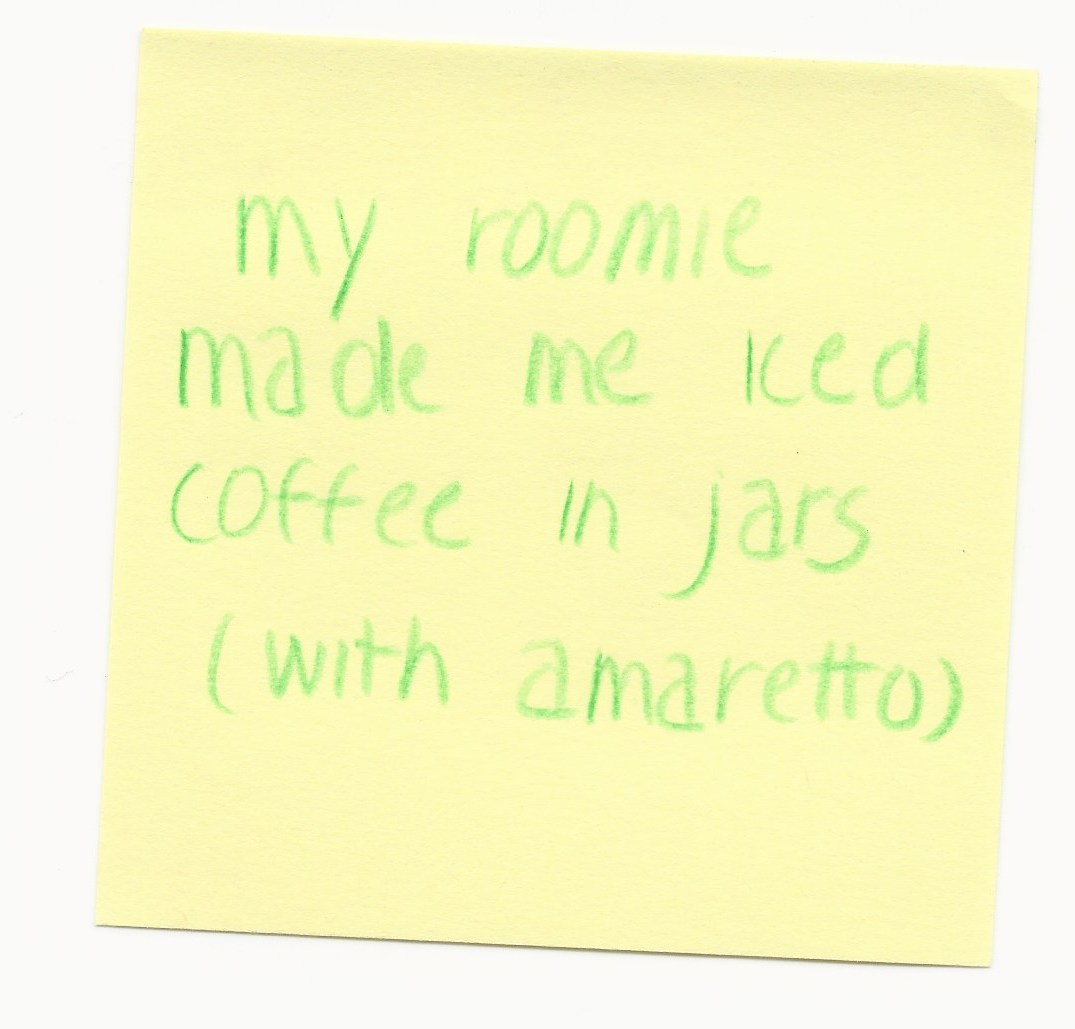 my roomie
made me iced
coffee in jars
(with amaretto)